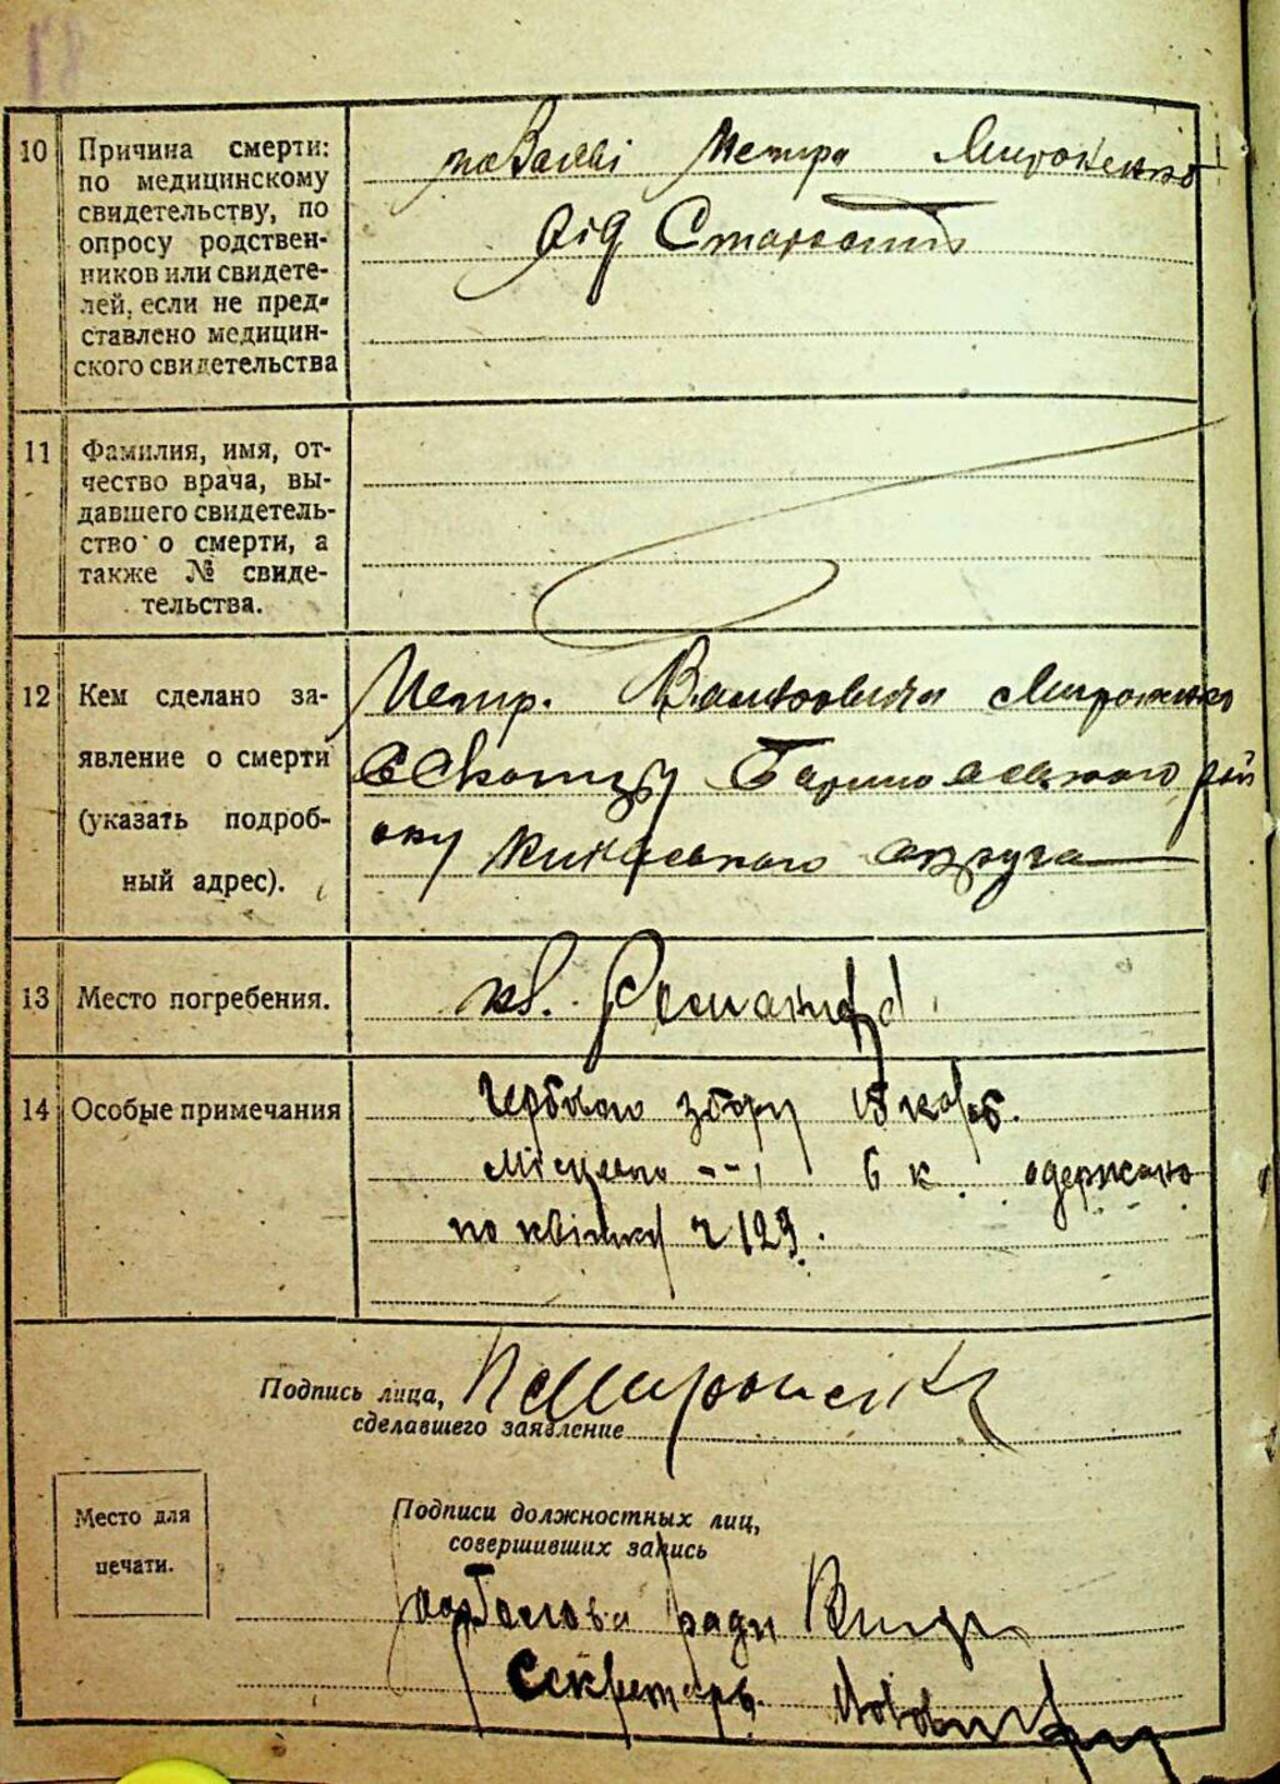 10 Причина смерти:
по медицинскому
свидетельству, по
опросу родствен-
ников или свидете-
лей, если не пред-
ставлено медицин-
ского свидетельства
по Заяві Петра Мироненко
від Старости
11 Фамилия, имя, от-
чество врача, вы-
давшего свидетель-
ство о смерти, а
также № свиде-
тельства.
12 Кем сделано за-
явление о смерти
(указать подроб-
ный адрес).
Петр. Мироненко
рай
ону округа
13 Место погребения.
кл.
14 Особые примечания
збору 15 короб.
Місцево -- 6 к. одержано
по квітку ч 129.
Подпись лица,
сделавшего заявление
П Мироненко
Место для
печати.
Подписи должностных лиц,
совершивших запись
Голова ради
Секретарь